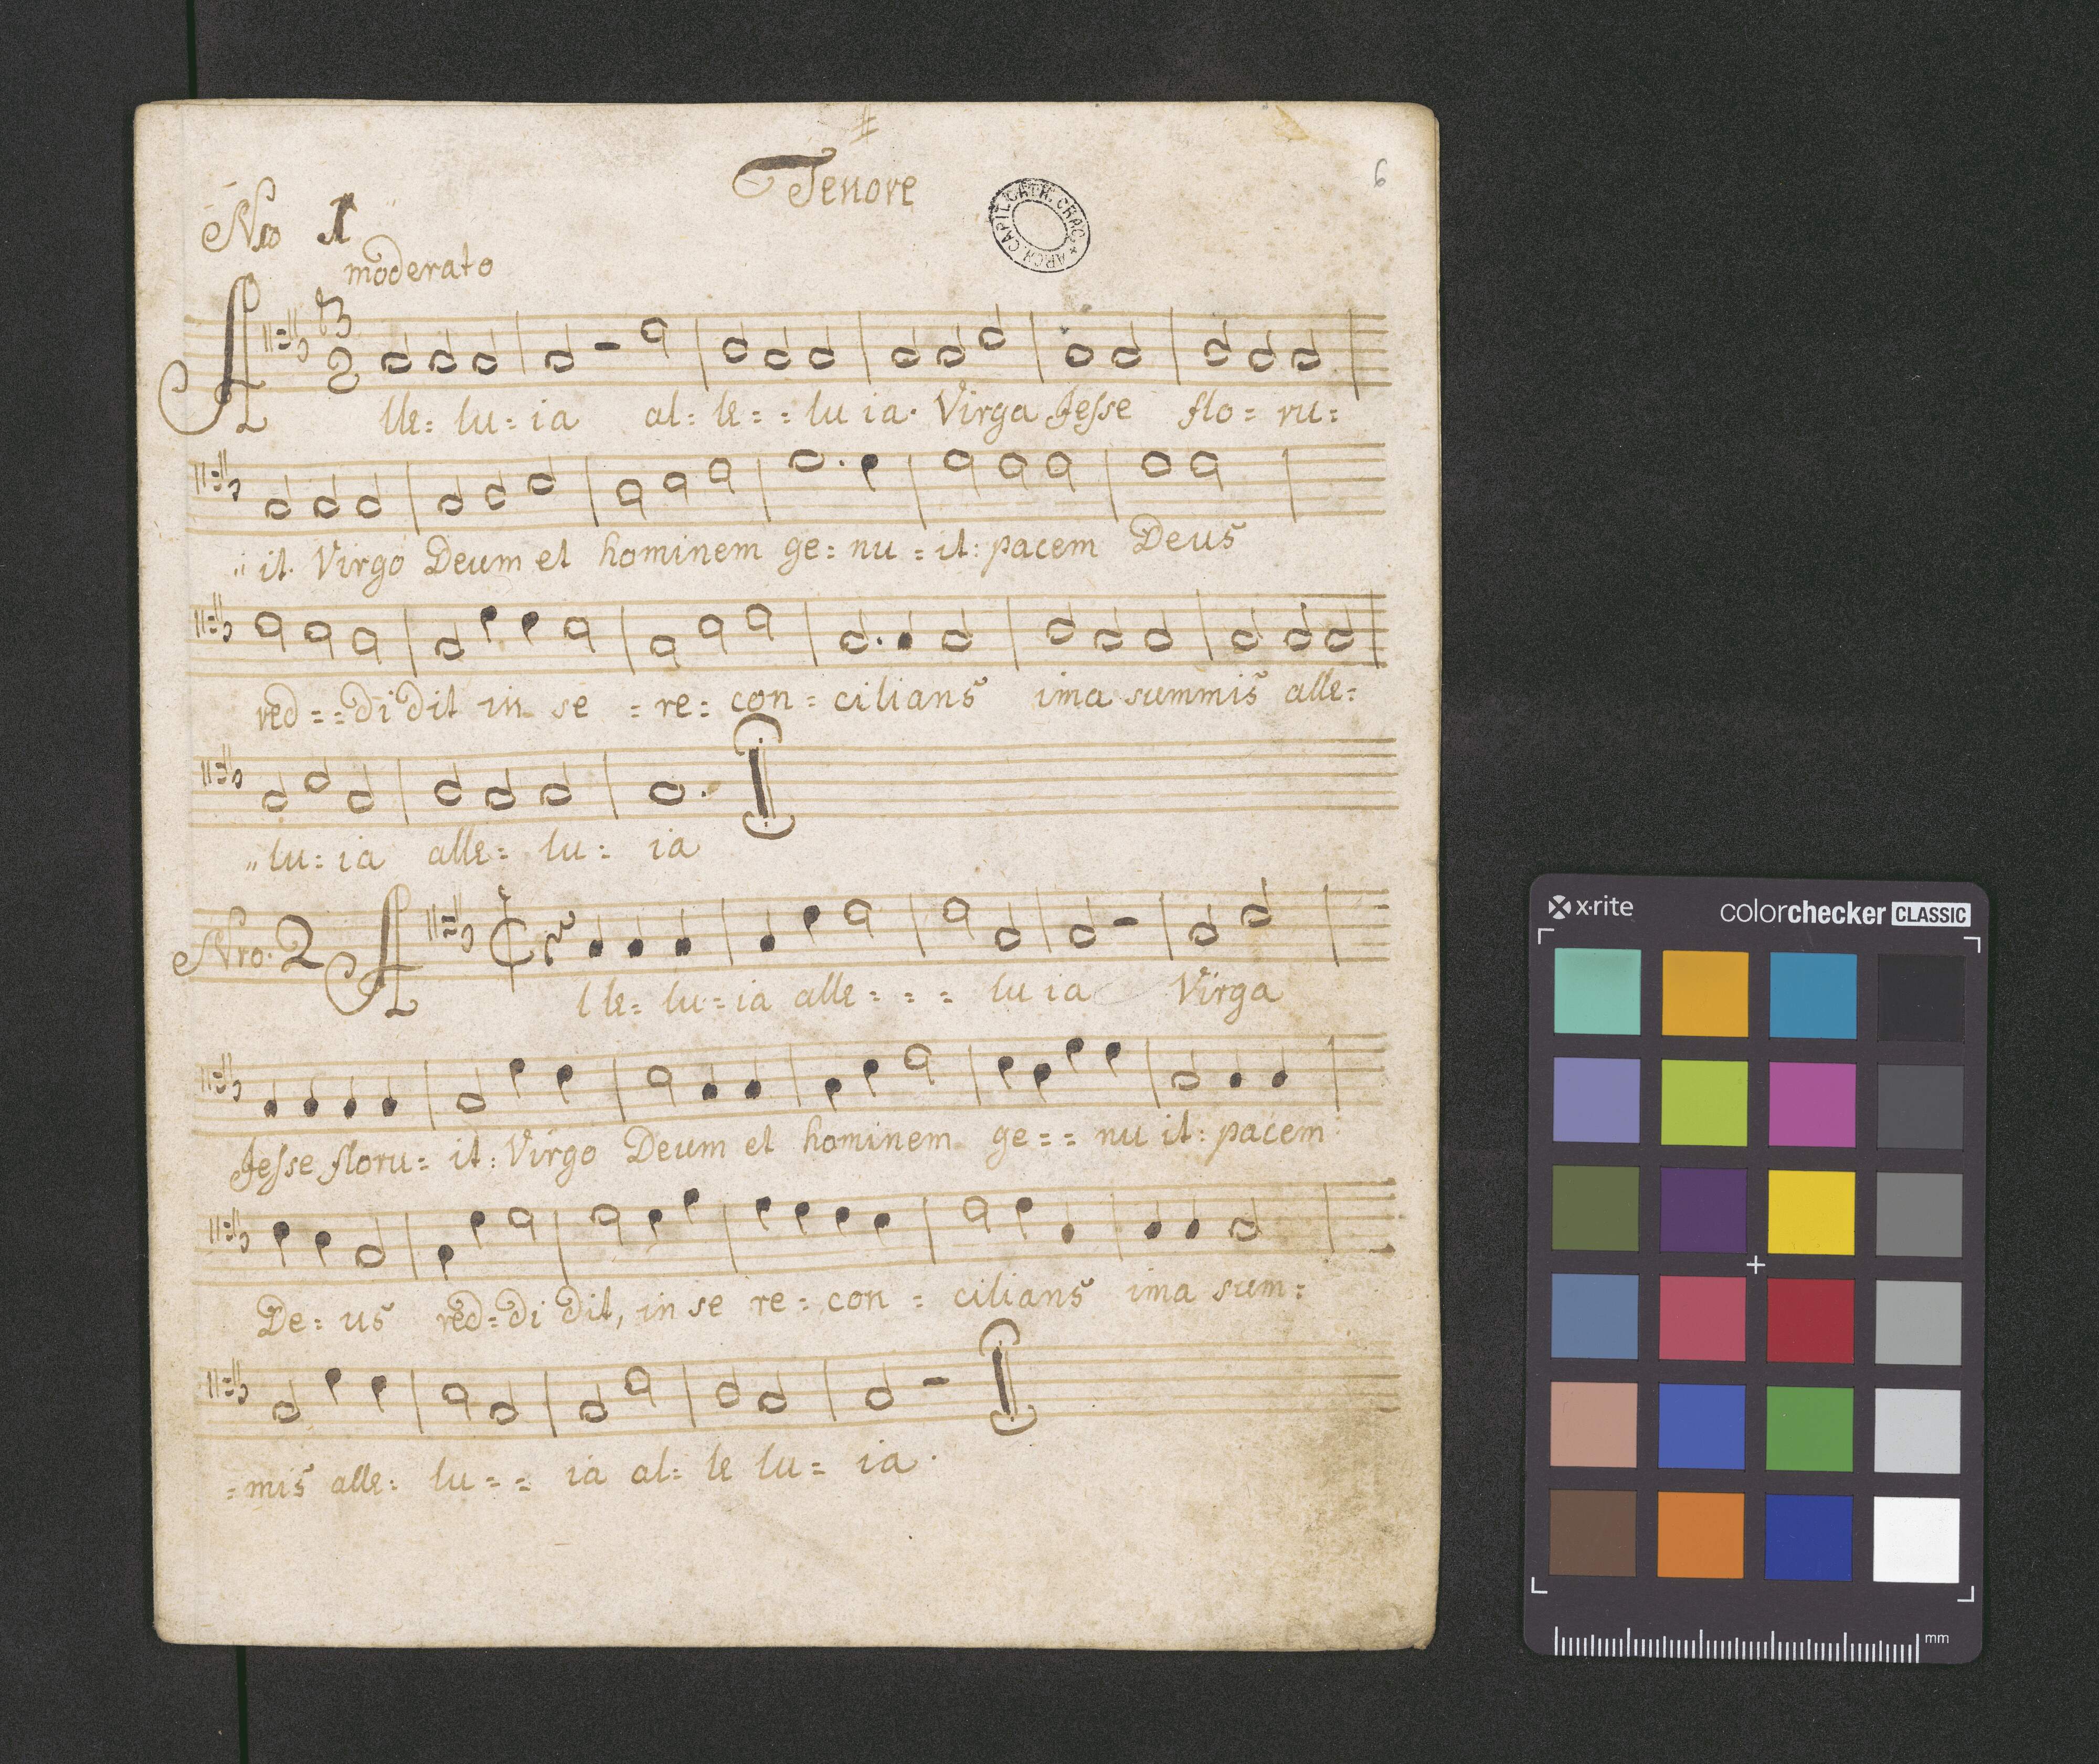 Tenore
6
ARCH. CAPIT. CATH. CRAC.
Nro 1
moderato
3
2
A lle: lu: ia al: le: : lu ia. Virga Jesse flo: ru:
it. Virgo Deum et hominem ge: nu: it: pacem Deus
red: : di dit in se : re: con: cilians ima summis alle:
lu: ia alle: lu: ia
Nro. 2 A l le: lu: ia alle: : : lu ia Virga
Jesse floru: it: Virgo Deum et hominem ge: : nu it: pacem
De: us red: di dit, in se re: con : cilians ima sum:
: mis alle: lu: : ia al: le lu: ia.
x·rite
colorchecker CLASSIC
mm